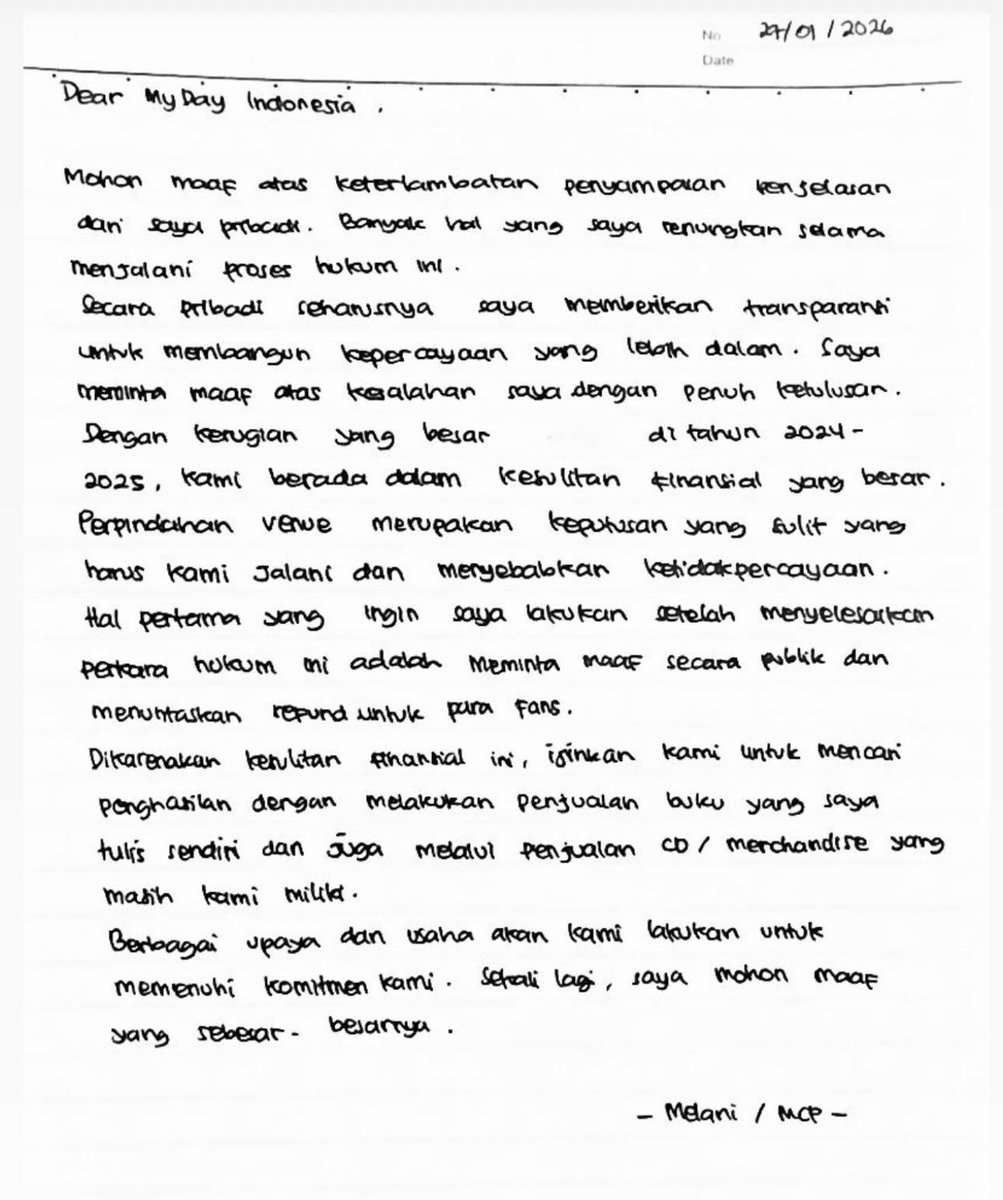 No 27/01/2026
Date
Dear MyDay Indonesia.
Mohon maaf atas keterlambatan penyampaian penjelasan
dari saya pribadi. Banyak hal yang saya renungkan selama
menjalani proses hukum ini.
Secara pribadi seharusnya saya memberikan transparansi
untuk membangun kepercayaan yang lebih dalam. Saya
meminta maaf atas kesalahan saya dengan penuh ketulusan.
Dengan kerugian yang besar di tahun 2024-
2025, kami berada dalam kesulitan finansial yang besar.
Perpindahan venue merupakan keputusan yang sulit yang
harus kami jalani dan menyebabkan ketidakpercayaan.
Hal pertama yang ingin saya lakukan setelah menyelesaikan
perkara hukum ini adalah meminta maaf secara publik dan
menuntaskan refund untuk para fans.
Dikarenakan kesulitan finansial ini, izinkan kami untuk mencari
penghasilan dengan melakukan penjualan buku yang saya
tulis sendiri dan juga melalui penjualan CD/merchandise yang
masih kami miliki.
Berbagai upaya dan usaha akan kami lakukan untuk
memenuhi komitmen kami. Sekali lagi, saya mohon maaf
yang sebesar-besarnya.
- Melani / MCP -